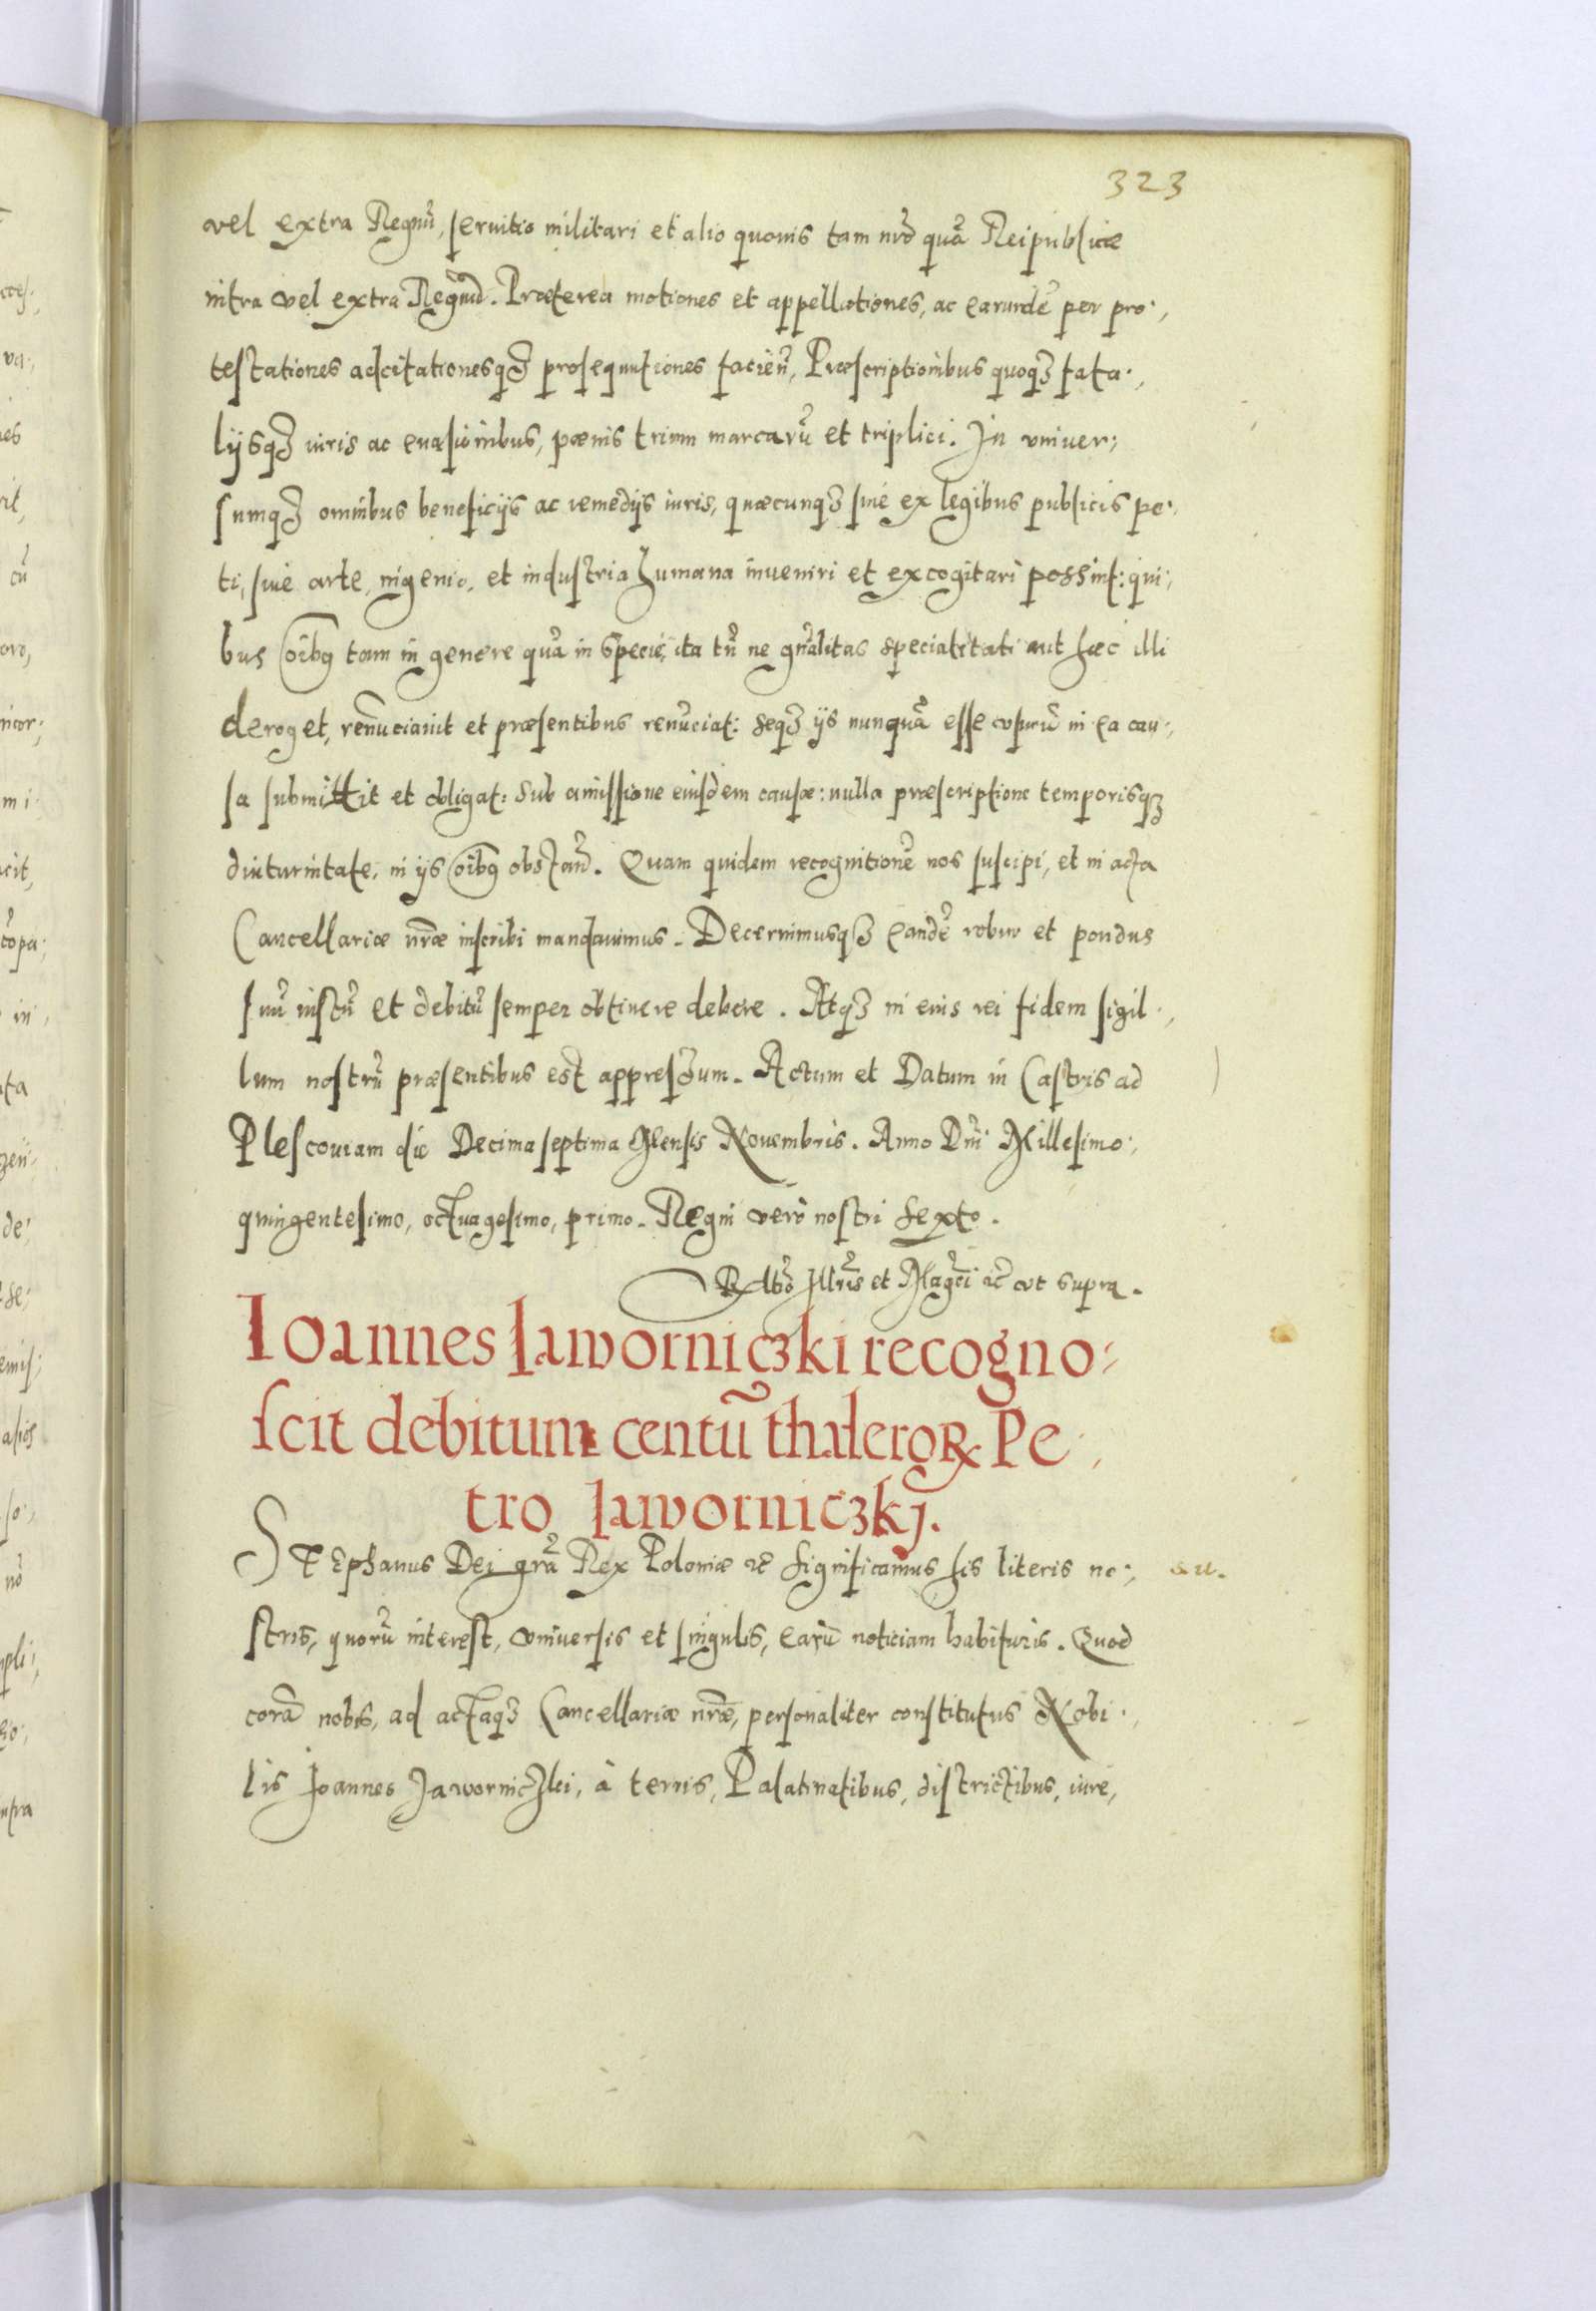 323
vel extra Regnũ, seruitio militari et alio quouis tam nr̃o quã Reipublicæ
intra vel extra Regnũ. Præterea motiones et appellationes, ac earundẽ per pro:,
testationes adcitationesq3 prosequutiones facieñ, Præscriptionibus quoq3 fata:,
lijsq3 iuris ac euasionibus, pænis trium marcarũ et triplici. In vniuer:
sumq3 omnibus beneficijs ac remedijs iuris, quæcunq3 siue ex legibus publicis pe:,
ti, siue arte, ingenio, et industria humana inueniri et excogitari possint: qui:
bus oĩbq tam in genere quã in specie, ita tñ ne gñalitas specialitati aut hæc illi
deroget, renũciauit et præsentibus renũciat: seq3 ijs nunquã esse vsurũ in ea cau:,
sa submittit et obligat: Sub amissione eiusdem causæ: nulla præscriptione temporisq3
diuturnitate, in ijs oĩbq obstañ. Quam quidem recognitionẽ nos suscipi, et in acta
Cancellariæ nr̃æ inscribi mandauimus. Decernimusq3 eandẽ robur et pondus
suũ iustũ et debitũ semper obtinere debere. Atq3 in eius rei fidem sigil:,
lum nostrũ præsentibus est appressum. Actum et Datum in Castris ad
Plescouiam die Decima septima Mensis Nouembris. Anno Dñi Millesimo:,
quingentesimo, octuagesimo, primo. Regni verò nostri Sexto.
Illr̃is et Magcĩ ac̃ vt supra.
Ioannes Jaworniczki recogno:
scit debitum centũ thaleroꝝ Pe:,
tro Jaworniczkj.
STEphanus Dei gr̃a Rex Poloniæ ac̃ Significamus his literis no:,
stris, quorũ interest, vniuersis et singulis, earũ noticiam habituris. Quod
corã nobis, ad actaq3 Cancellariæ nr̃æ, personaliter constitutus Nobi:,
lis Joannes Jaworniczki, à terris, Palatinatibus, districtibus, iure,